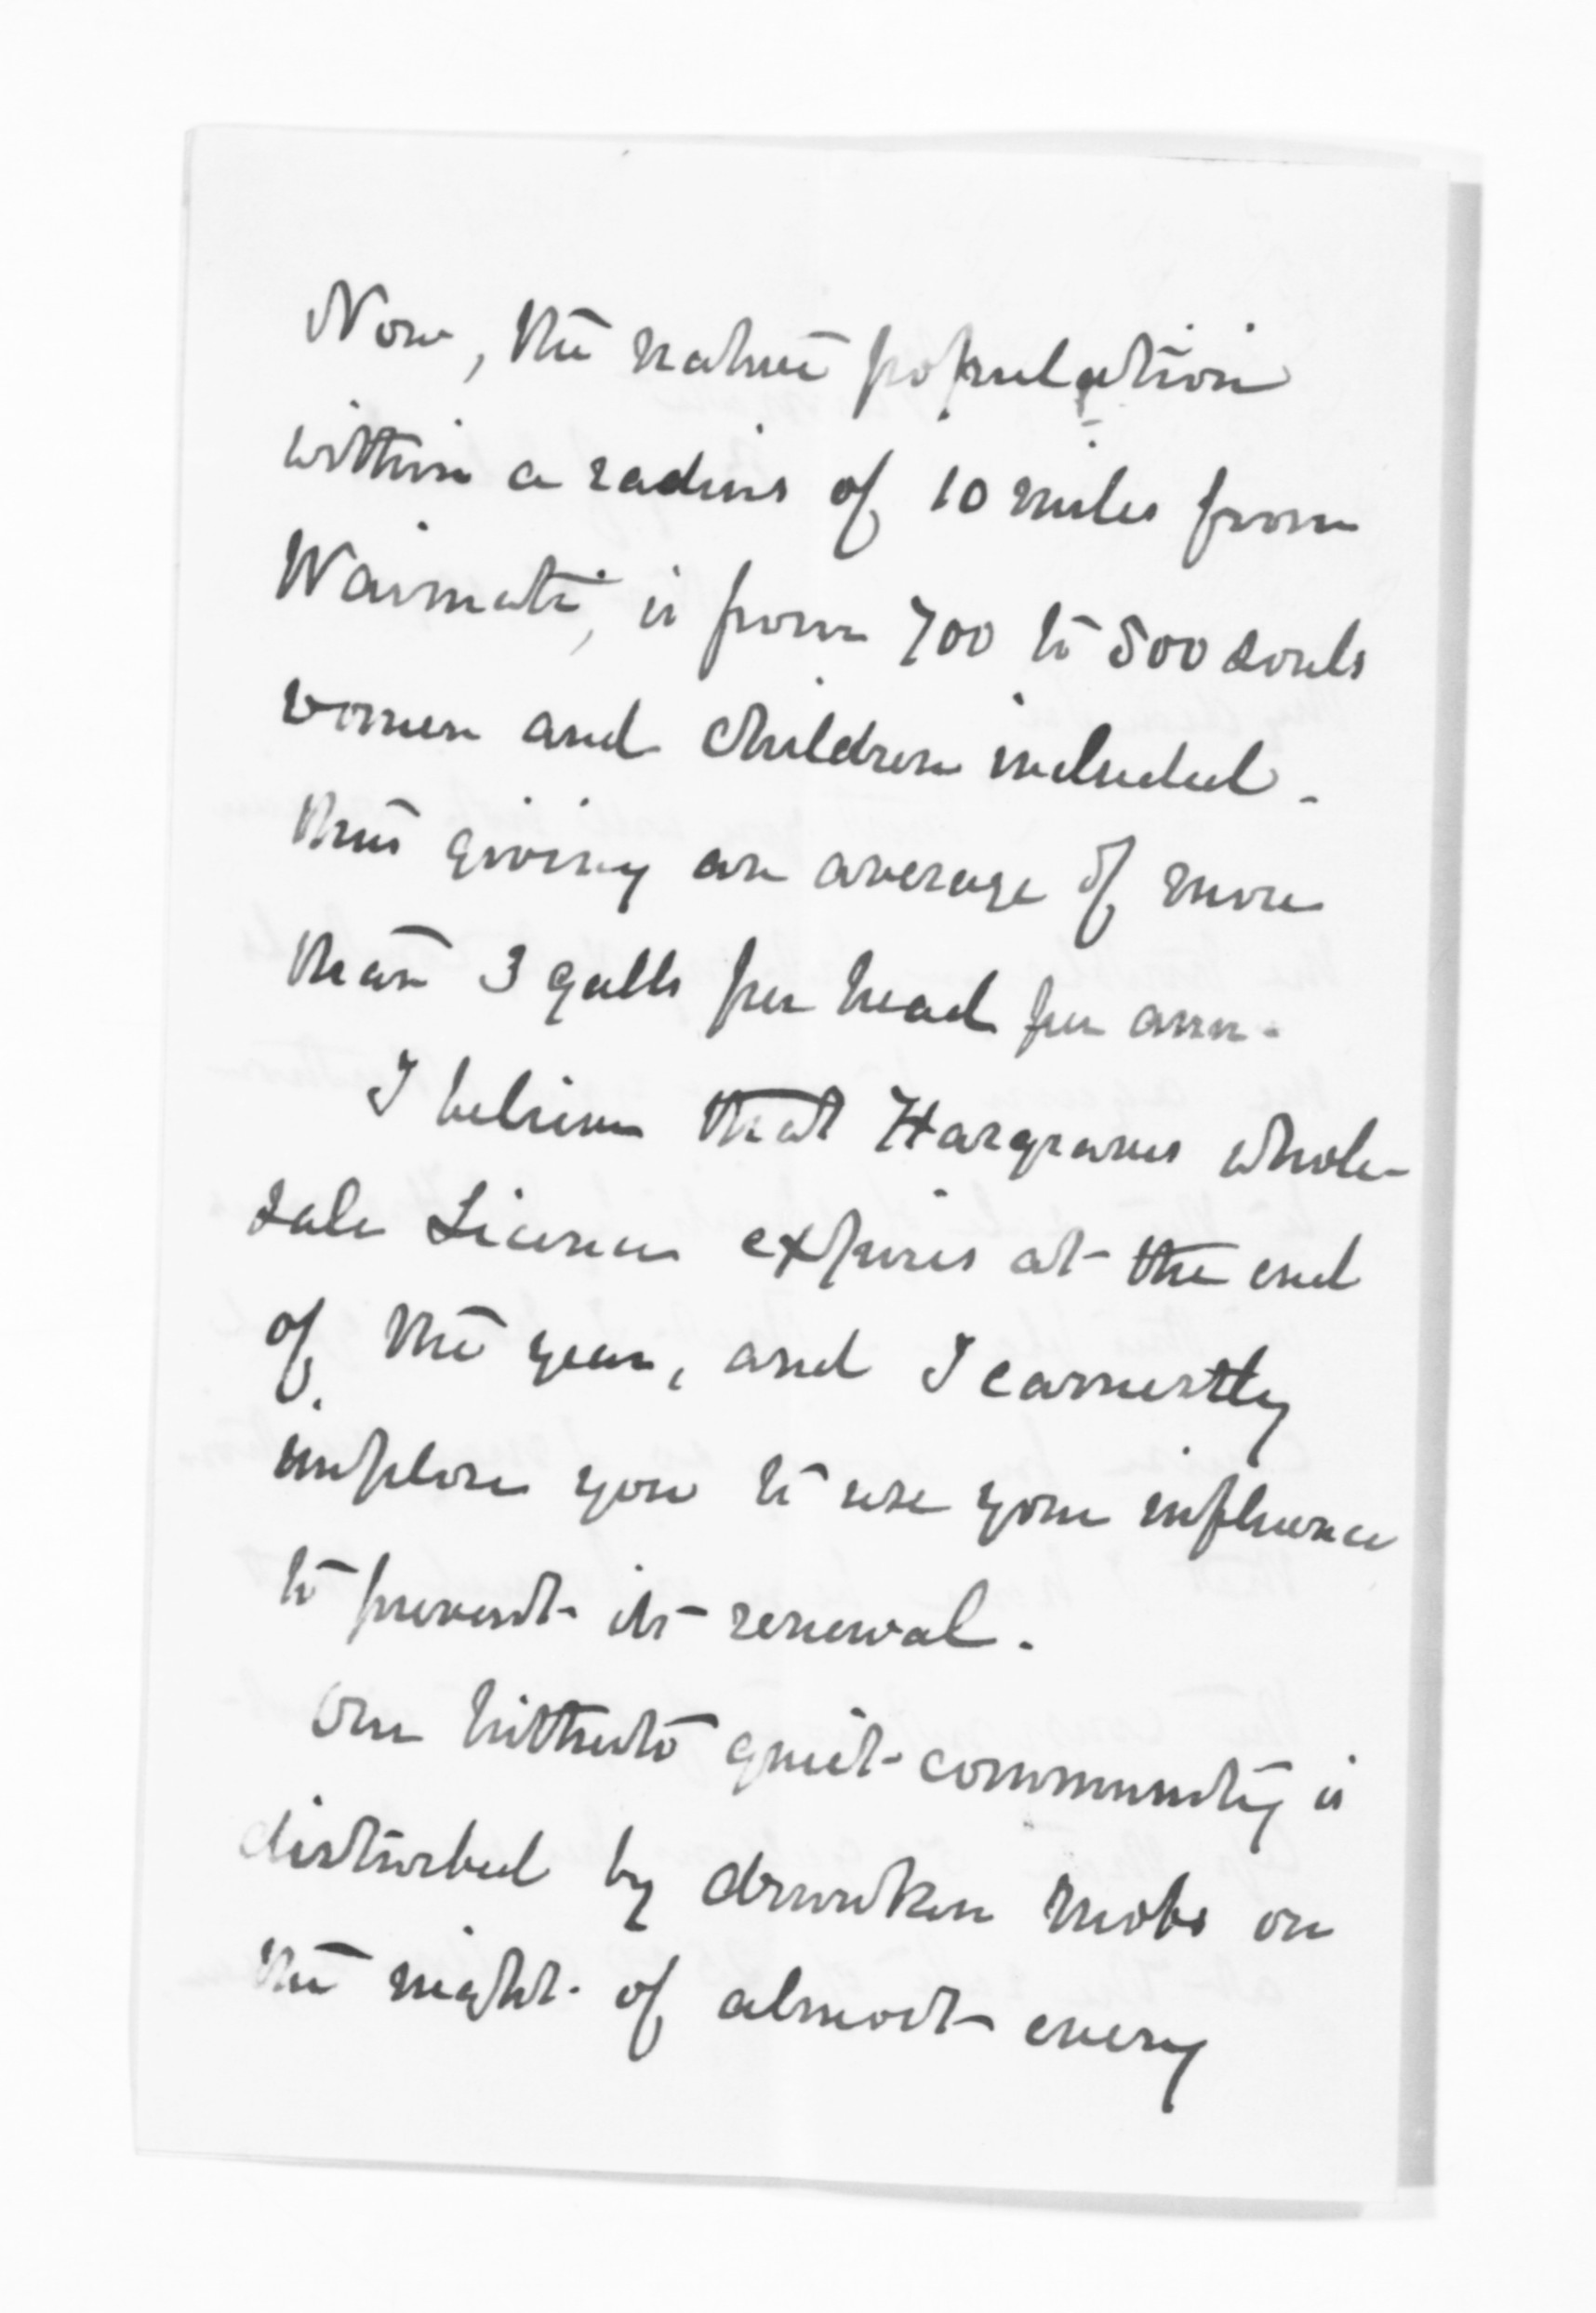 Now, the native population
within a radius of 10 miles from
Waimate, is from 700 to 800 souls
women and children included -
thus giving an average of more
than 3 galls per head per ann.
I believe that Hargraves whole-
sale Licence expires at the end
of the year, and I earnestly
implore you to use your influence
to prevent its renewal.
Our hitherto quiet community is
disturbed by drunken mobs on
the night of almost every